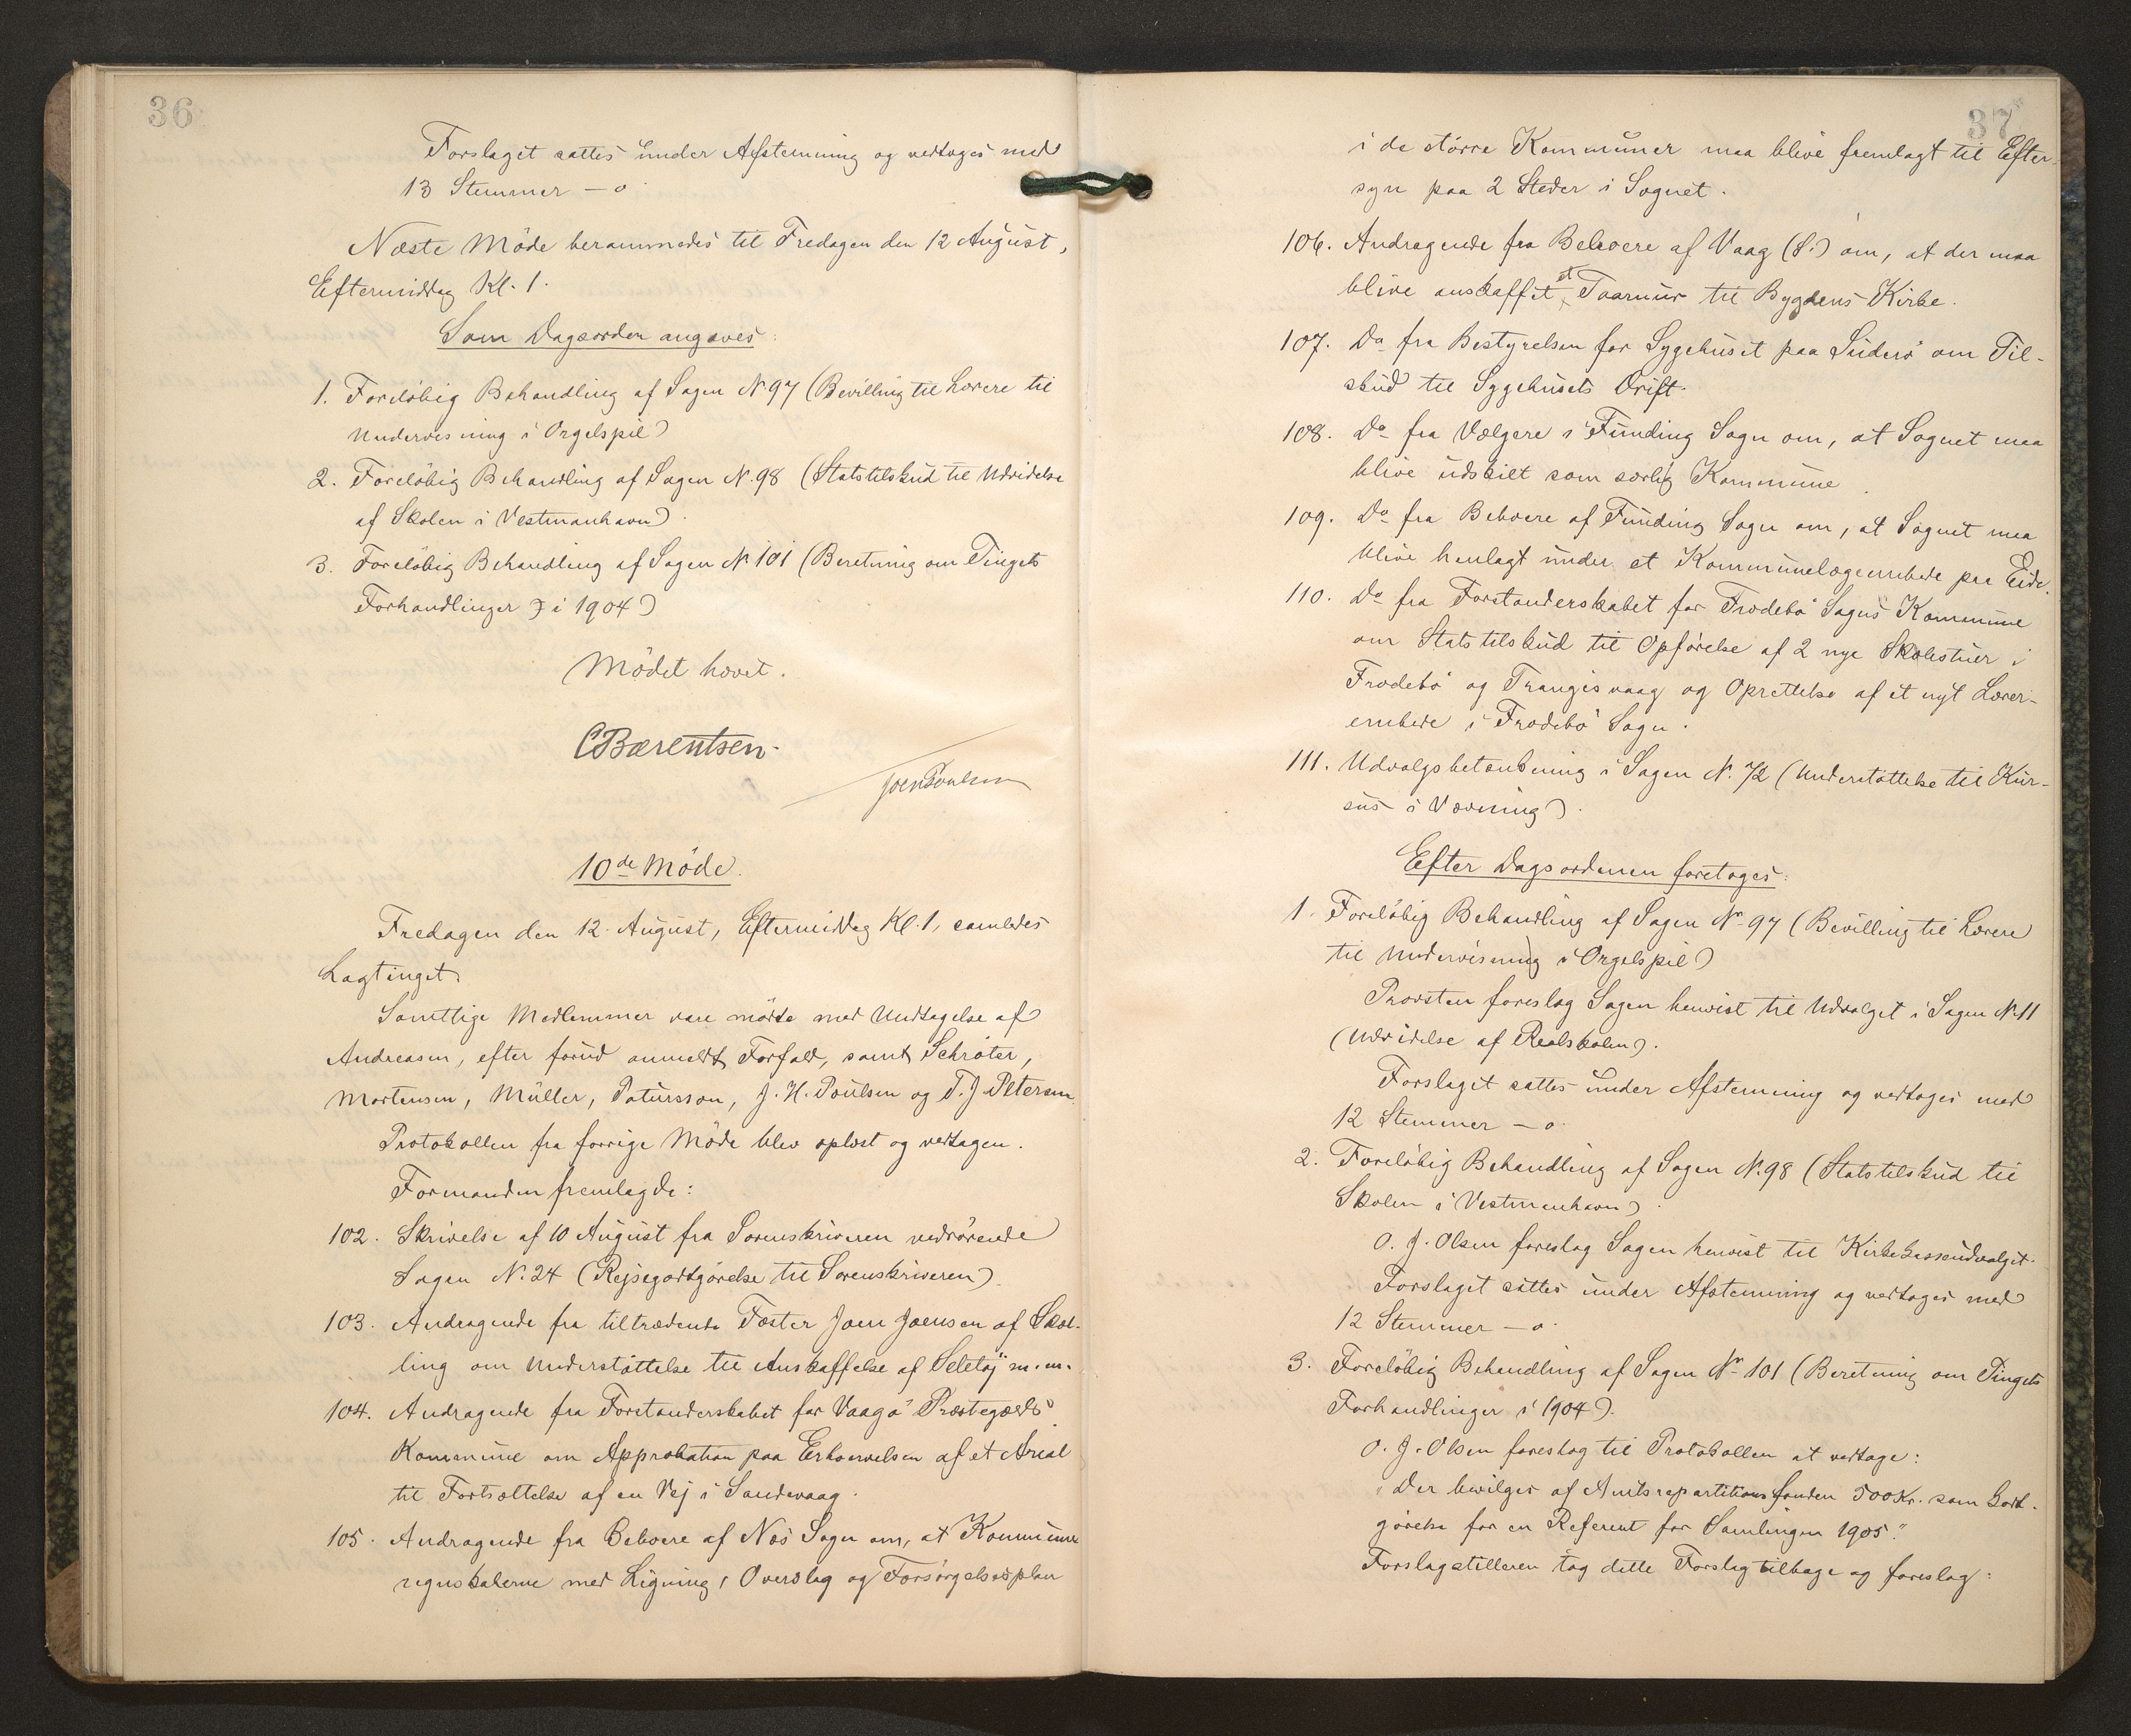 36
Forslaget sattes under Afstemning og vedtoges med
13 Stemmer – 0.
Næste Möde berammedes til Fredagen den 12 August,
Eftermiddag Kl. 1.
Som Dagsorden angaves:
1. Foreløbig Behandling af Sagen No 97 (Bevilling til Lærere til
Undervisning i Orgelspil)
2. Foreløbig Behandling af Sagen No. 98 (Statstilskud til Udvidelse
af Skolen i Vestmanhavn).
3. Foreløbig Behandling af Sagen No 101 (Beretning om Tingets
Forhandlinger i 1904)
Mödet hævet.
CBærentsen.
Joen Poulsen
10de Möde.
Fredagen den 12. August, Eftermiddag Kl. 1, samledes
Lagtinget.
Samtlige Medlemmer vare mödte med Undtagelse af
Andreasen, efter forud anmeldt Forfald, samt Schröter,
Mortensen, Müller, Patursson, J. H. Poulsen og T. J. Petersen.
Protokollen fra forrige Möde blev oplæst og vedtagen.
Formanden fremlagde:
102. Skrivelse af 10 August fra Sorenskriveren vedrörende
Sagen No. 24 (Rejsegodtgörelse til Sorenskriveren).
103. Andragende fra tiltrædende Fæster Joen Joensen af Skæl-
ling om Understöttelse til Anskaffelse af Seletöj m. m.
104. Andragende fra Forstanderskabet for Vaagö Præstegælds
Kommune om Approbation paa Erhvervelsen af et Areal
til Fortsættelse af en Vej i Sandevaag.
105. Andragende fra Beboere af Næs Sogn om, at Kommune
regnskaberne med Ligning, Overslag og Forsörgelsesplan
37
i de större Kommuner maa blive fremlagt til Efter-
syn paa 2 Steder i Sognet.
106. Andragende fra Beboere af Vaag (S.) om, at der maa
blive anskaffet et Taarnur til Bygdens Kirke.
107. Do fra Bestyrelsen for Sygehuset paa Suderö om Til-
skud til Sygehusets Drift.
108. Do fra Vælgere i Funding Sogn om, at Sognet maa
blive udskilt som særlig Kommune.
109. Do fra Beboere af Funding Sogn om, at Sognet maa
blive henlagt under et Kommunelægeembede paa Eide.
110. Do fra Forstanderskabet for Frodebö Sogns Kommune
om Statstilskud til Opførelse af 2 nye Skolestuer i
Frodebö og Trangisvaag og Oprettelse af et nyt Lærer-
embede i Frodebö Sogn.
111. Udvalgsbetænkning i Sagen No. 72 (Understöttelse til Kur-
sus i Vævning).
Efter Dagsordenen foretoges:
1. Foreløbig Behandling af Sagen No 97 (Bevilling til Lærere
til Undervisning i Orgelspil)
Provsten foreslog Sagen henvist til Udvalget i Sagen No 11
(Udvidelse af Realskolen).
Forslaget sattes under Afstemning og vedtoges med
12 Stemmer – 0.
2. Foreløbig Behandling af Sagen No. 98 (Statstilskud til
Skolen i Vestmanhavn).
O. J. Olsen foreslog Sagen henvist til Kirkekasseudvalget.
Forslaget sattes under Afstemning og vedtoges med
12 Stemmer – 0.
3. Foreløbig Behandling af Sagen No 101 (Beretning om Tingets
Forhandlinger i 1904).
O. J. Olsen foreslog til Protokollen at vedtage:
"Der bevilges af Amtsrepartitionsfonden 500 Kr. som Godt-
görelse for en Referent for Samlingen 1905."
Forslagstilleren tog dette Forslag tilbage og foreslog: